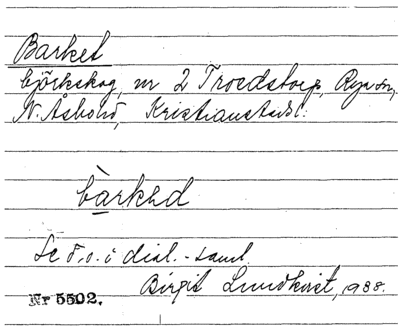 Barket
björkskog, nr 2 Troedstorp, Rya sn,
N. Åsbo hd, Kristianstads l.
bàrkəd
Se F.o. i dial.-saml.
Birgit Lundkvist, 1938.
Nr 5502.